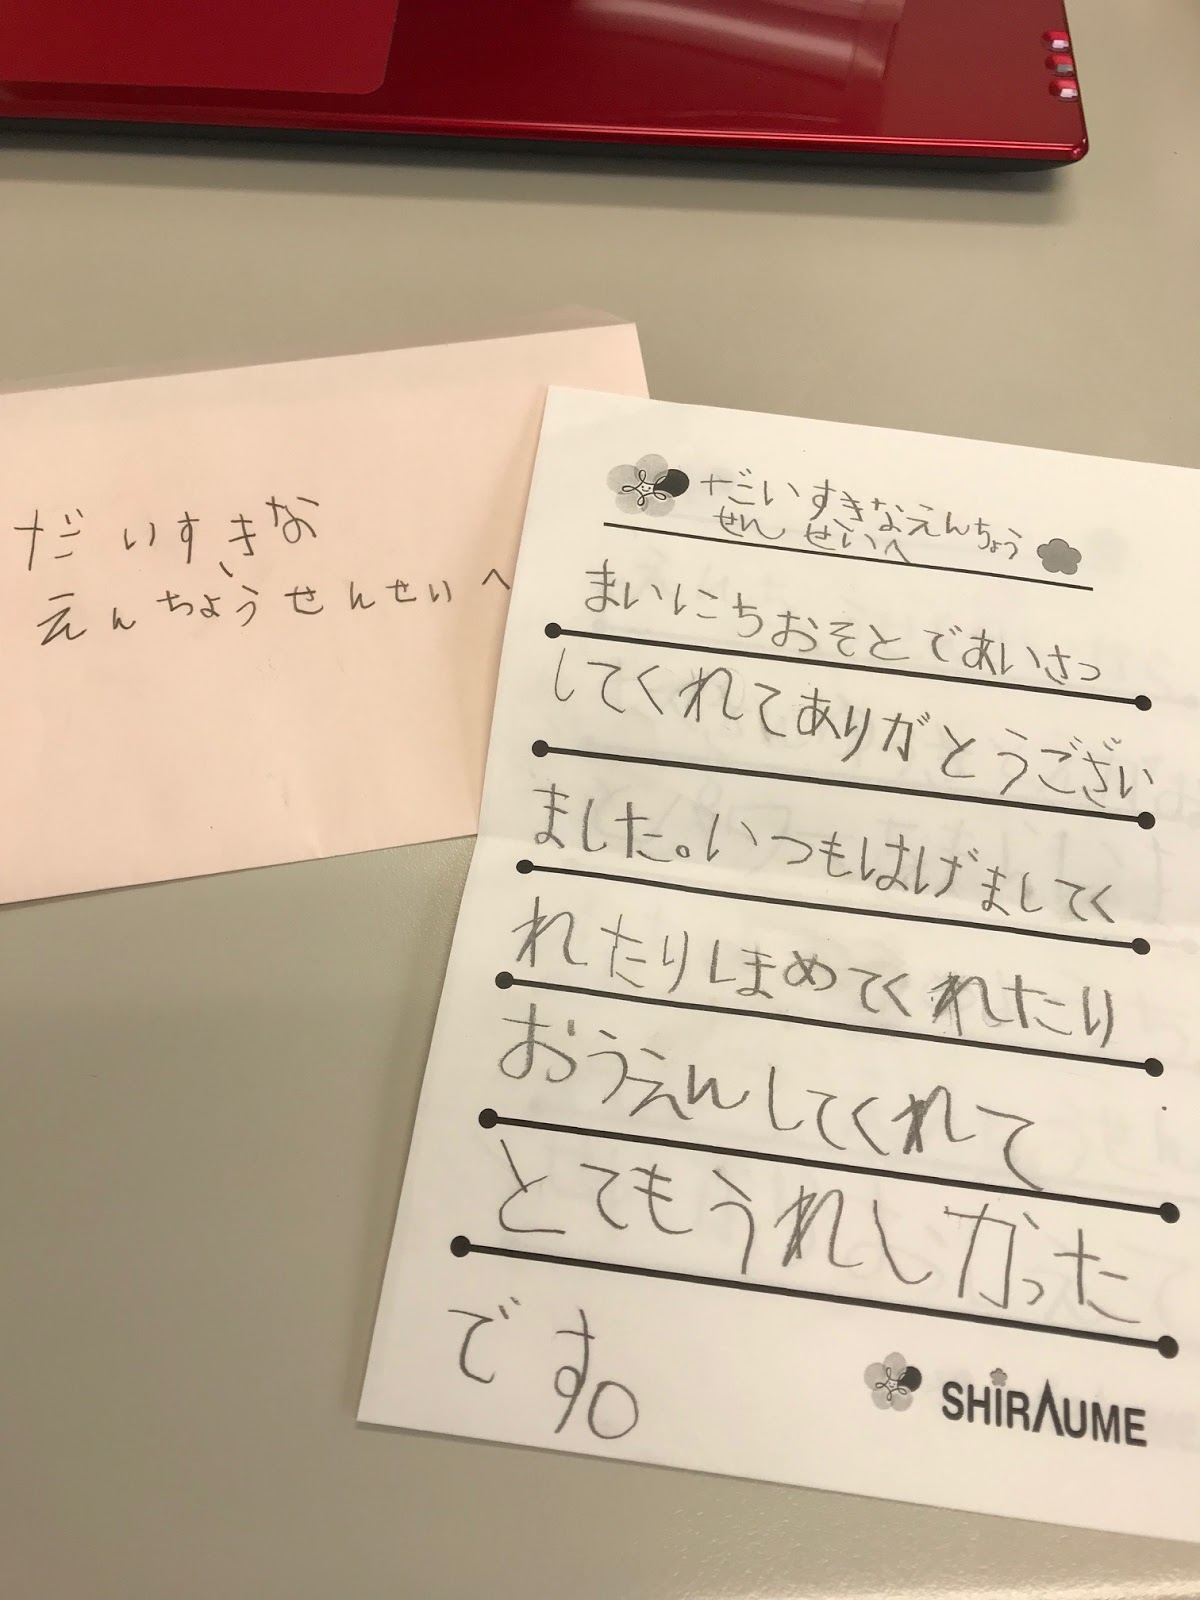 だいすきな
えんちょうせんせいへ
だいすきなえんちょう
せんせいへ
まいにちおそとであいさつ
してくれてありがとうござい
ました。いつもはげましてく
れたりしまめてくれたり
おうえんしてくれて
とてもうれしかった
です。
SHIRAUME